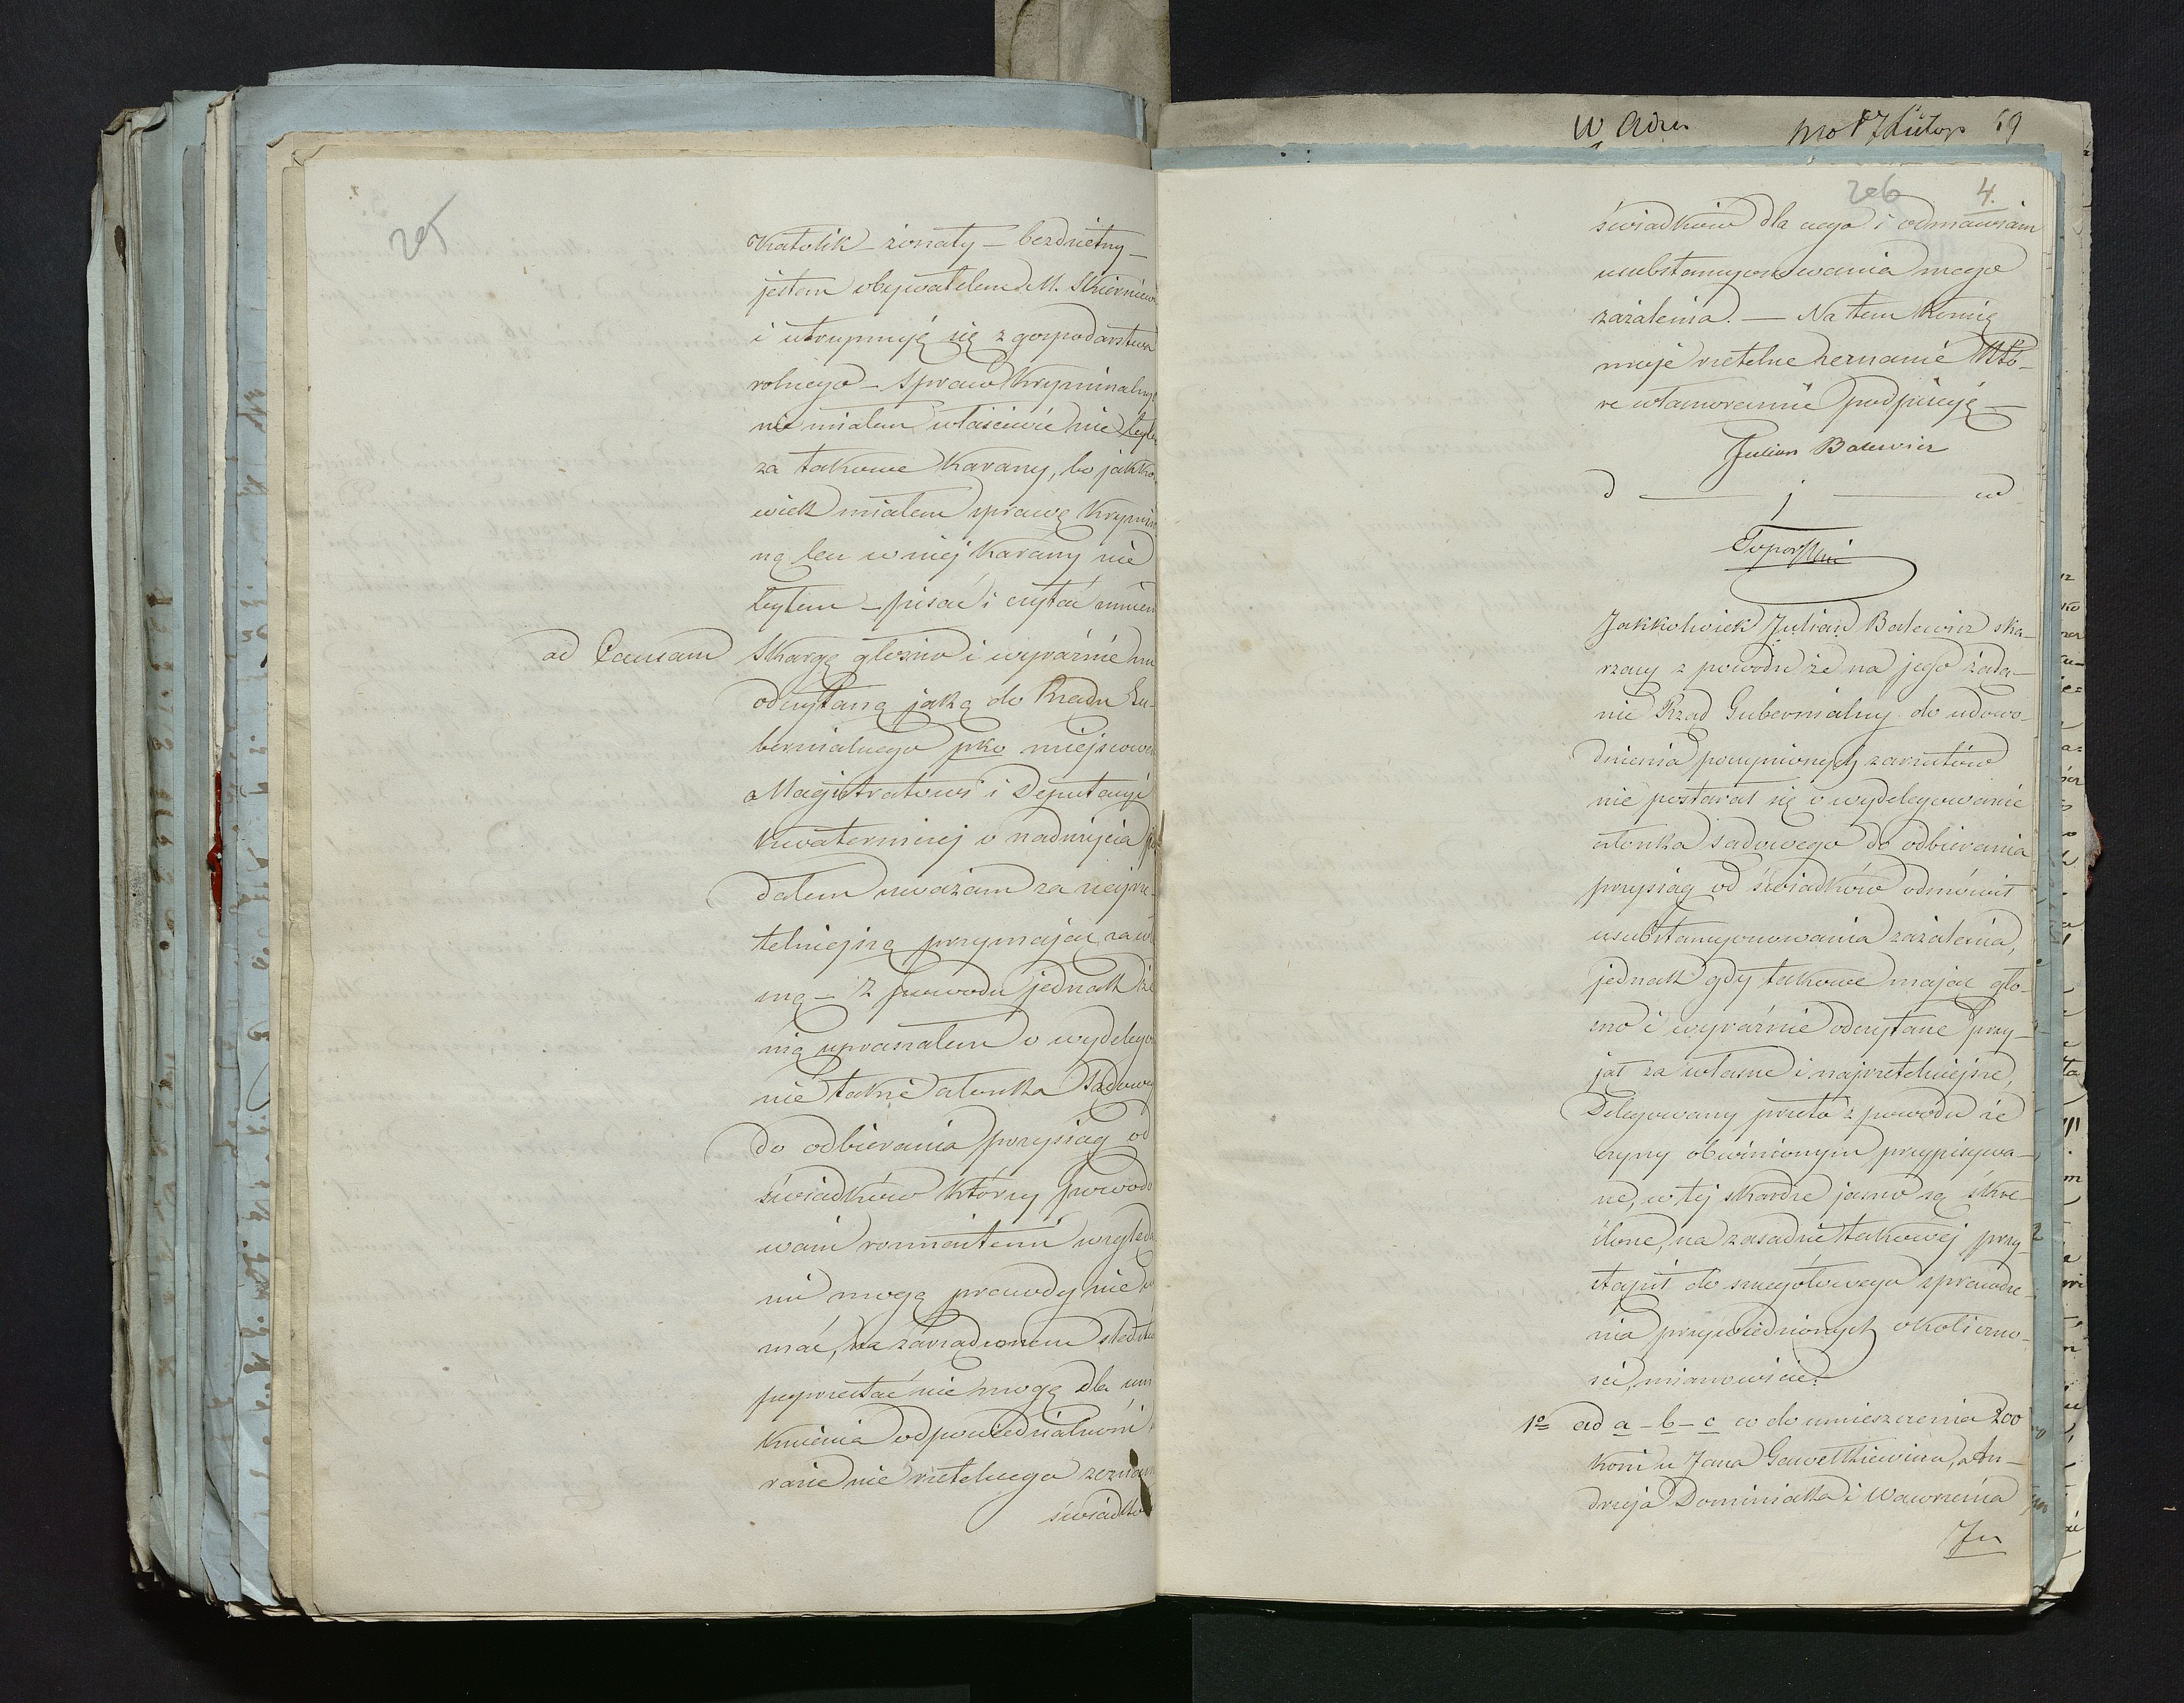 205
Katolik – żonaty – bezdzietny –
jestem obywatelem M. Skierniew
i utrzymuję się z gospodarstwa
rolnego – spraw kryminalny
nie miałem właściwie nie był
za takowe karany, bo jakko
wiek miałem sprawę krymin
ną lecz w niej karany nie
byłem – pisać i czytać umiem
ad Causam Skargę głośno i wyraźnie mi
odczytaną jaką do Rządu Gu-
bernialnego pko miejscowe
Magistratowi i Deputacyi
Kwaterniczej o nadużycia po
dałem uważam za najrze-
telniejszą przyjmając za w
sną – Z powodu jednak że
nią upraszałem o wydelego
nie także członka Sądowe
do odbierania przysiąg od
świadków którzy powodo
wani rozmaitemi względa
mi mogą prawdy nie
znać, na zarządzonem śledztw
poprzestać nie mogę dla uni
knienia odpowiedzialności
razie nie rzetelnego zeznan
świadków
W Adzu
206 4.
świadków dla czego i odmawiam
usubstancyonowania mego
zażalenia. – Na tem kończę
moje rzetelne zeznanie któ-
re własnoręcznie podpisuję –
Julian Balewicz
d — j — ud
Toporski
Jakkolwiek Julian Balewicz ska-
rzący z powodu że na jego żąda-
nie Rząd Gubernialny do udowo-
dnienia poczynionych zarzutów
nie postarał się o wydelegowanie
członka sądowego do odbierania
przysiąg od świadków odmówił
usubstancyonowania zażalenia,
jednak gdy takowe mając gło-
śno i wyraźnie odczytane przy-
jął za własne i najrzetelniejsze,
Delegowany przeto z powodu że
czyny obwinionym przypisywa-
ne, w tej skardze jasno są skre-
ślone, na zasadzie takowej przy-
stąpił do szczegółowego sprawdze-
nia przywiedzionych okoliczno-
ści, mianowicie:
1º ad a – b – c co do umieszczenia 200
koni u Jana Gawełkiewicza, An-
drzeja Dominiaka i Wawrzeńca
Ju